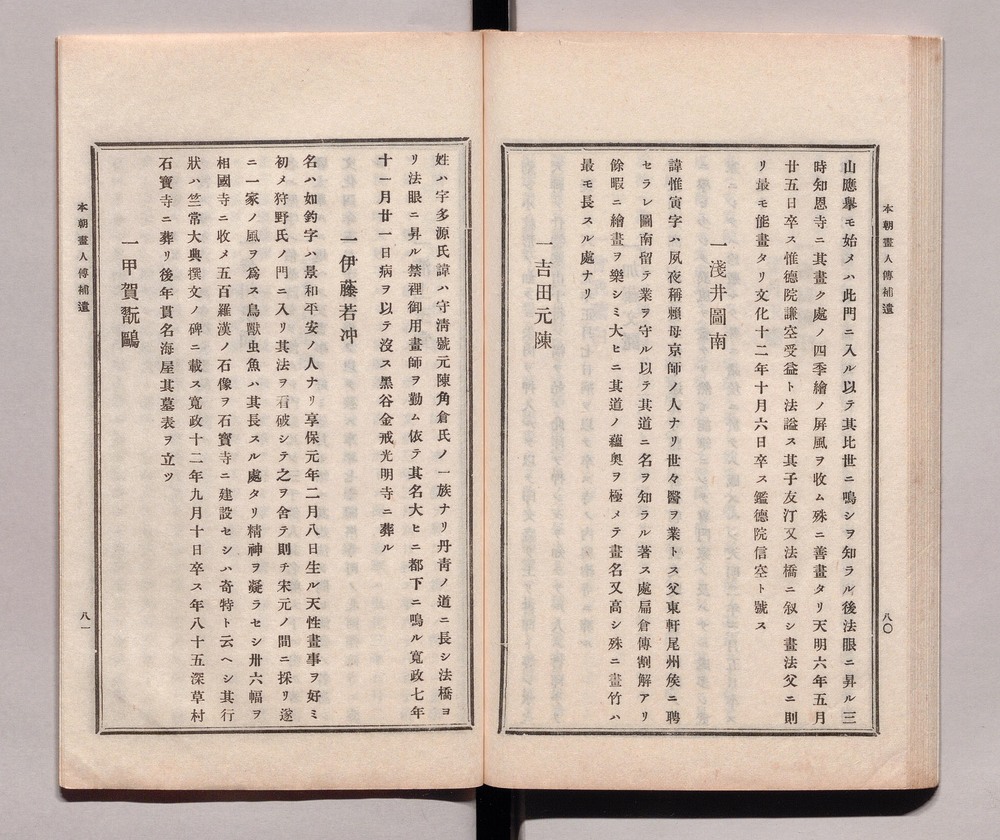 本朝畫人傳補遺
八〇
山應擧モ始メハ此門ニ入ル以テ其比世ニ鳴シヲ知ラル後法眼ニ昇ル三
時知恩寺ニ其畫ク處ノ四季繪ノ屏風ヲ收ム殊ニ善畫タリ天明六年五月
廿五日卒ス惟德院謙空受益ト法謚ス其子友汀又法橋ニ叙シ畫法父ニ則
リ最モ能畫タリ文化十二年十月六日卒ス鑑德院信空ト號ス
一淺井圖南
諱惟寅字ハ夙夜稱賴母京師ノ人ナリ世々醫ヲ業トス父東軒尾州侯ニ聘
セラレ圖南留テ業ヲ守ル以テ其道ニ名ヲ知ラル著ス處扁倉傳割解アリ
餘暇ニ繪畫ヲ樂シミ大ヒニ其道ノ蘊奧ヲ極メテ畫名又高シ殊ニ畫竹ハ
最モ長スル處ナリ
一吉田元陳
姓ハ宇多源氏諱ハ守淸號元陳角倉氏ノ一族ナリ丹靑ノ道ニ長シ法橋ヨ
リ法眼ニ昇ル禁裡御用畫師ヲ勤ム依テ其名大ヒニ都下ニ鳴ル寬政七年
十一月廿一日病ヲ以テ沒ス黑谷金戒光明寺ニ葬ル
一伊藤若冲
名ハ如鈞字ハ景和平安ノ人ナリ享保元年二月八日生ル天性畫事ヲ好ミ
初メ狩野氏ノ門ニ入リ其法ヲ看破シテ之ヲ舍テ則チ宋元ノ間ニ採リ遂
ニ一家ノ風ヲ爲ス鳥獸虫魚ハ其長スル處タリ精神ヲ凝ラセシ卅六幅ヲ
相國寺ニ收メ五百羅漢ノ石像ヲ石寶寺ニ建設セシハ奇特ト云ヘシ其行
狀ハ竺常大典撰文ノ碑ニ載ス寬政十二年九月十日卒ス年八十五深草村
石寶寺ニ葬リ後年貫名海屋其墓表ヲ立ツ
一甲賀翫鷗
本朝畫人傳補遺
八一